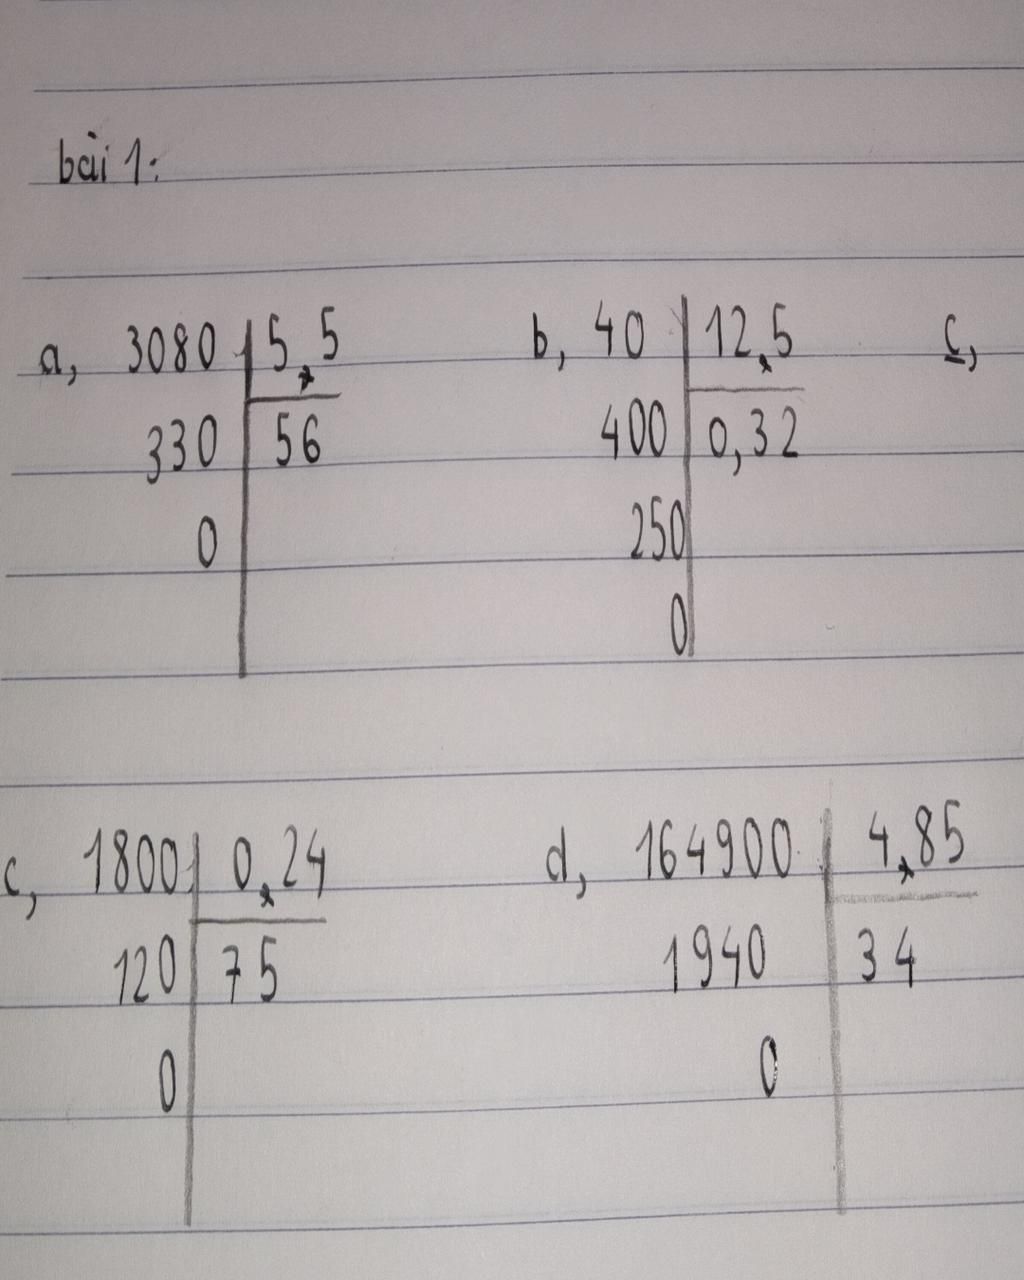 bài 1:
a, 3080 5,5 b, 40 12,5 c,
330 56 400 0,32
0 250
0
c, 1800 0,24 d, 164900 4,85
120 75 1940 34
0 0